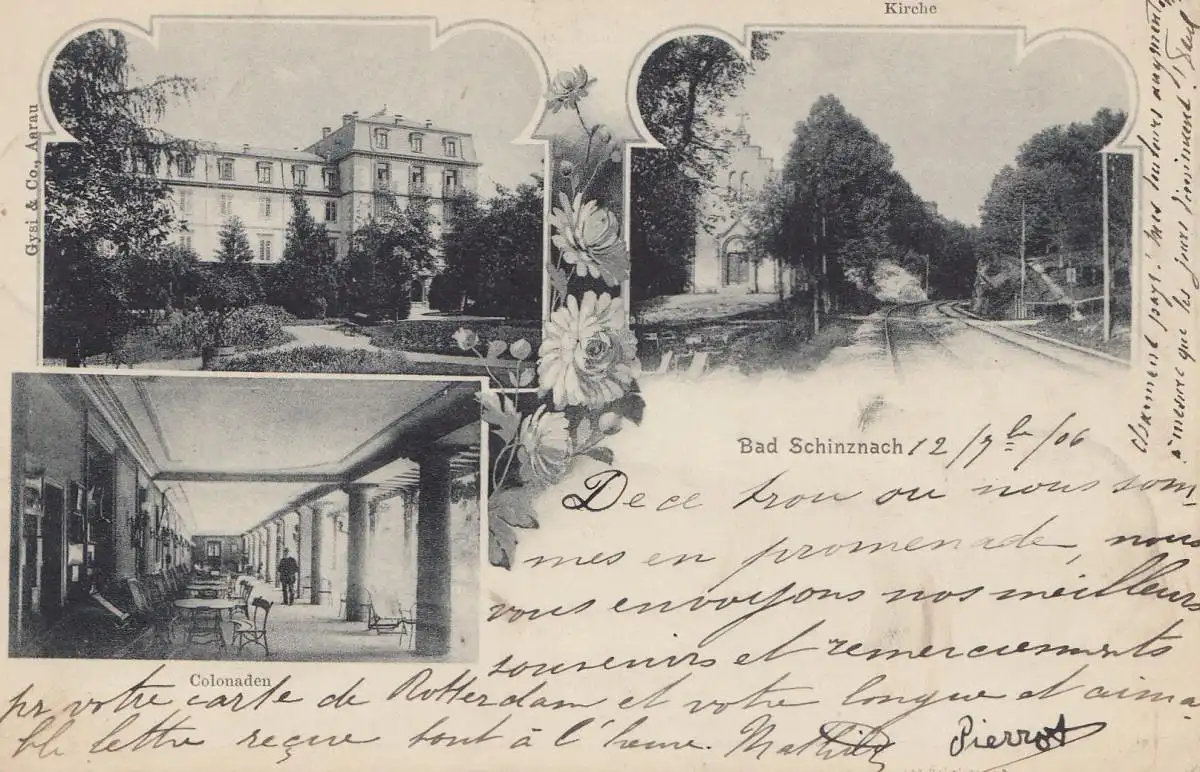 Kirche
Gysi & Co., Aarau
Bad Schinznach 12/7 bre/06
De ce trou ou nous som
mes en promenade, nous
vous envoyons nos meilleurs
souvenirs et remerciements
Colonaden
pr votre carte de Rotterdam et votre longue et aima
ble lettre reçue tout à l'heure. Mathilde
Pierrot
à mesure que les jours diminuent!